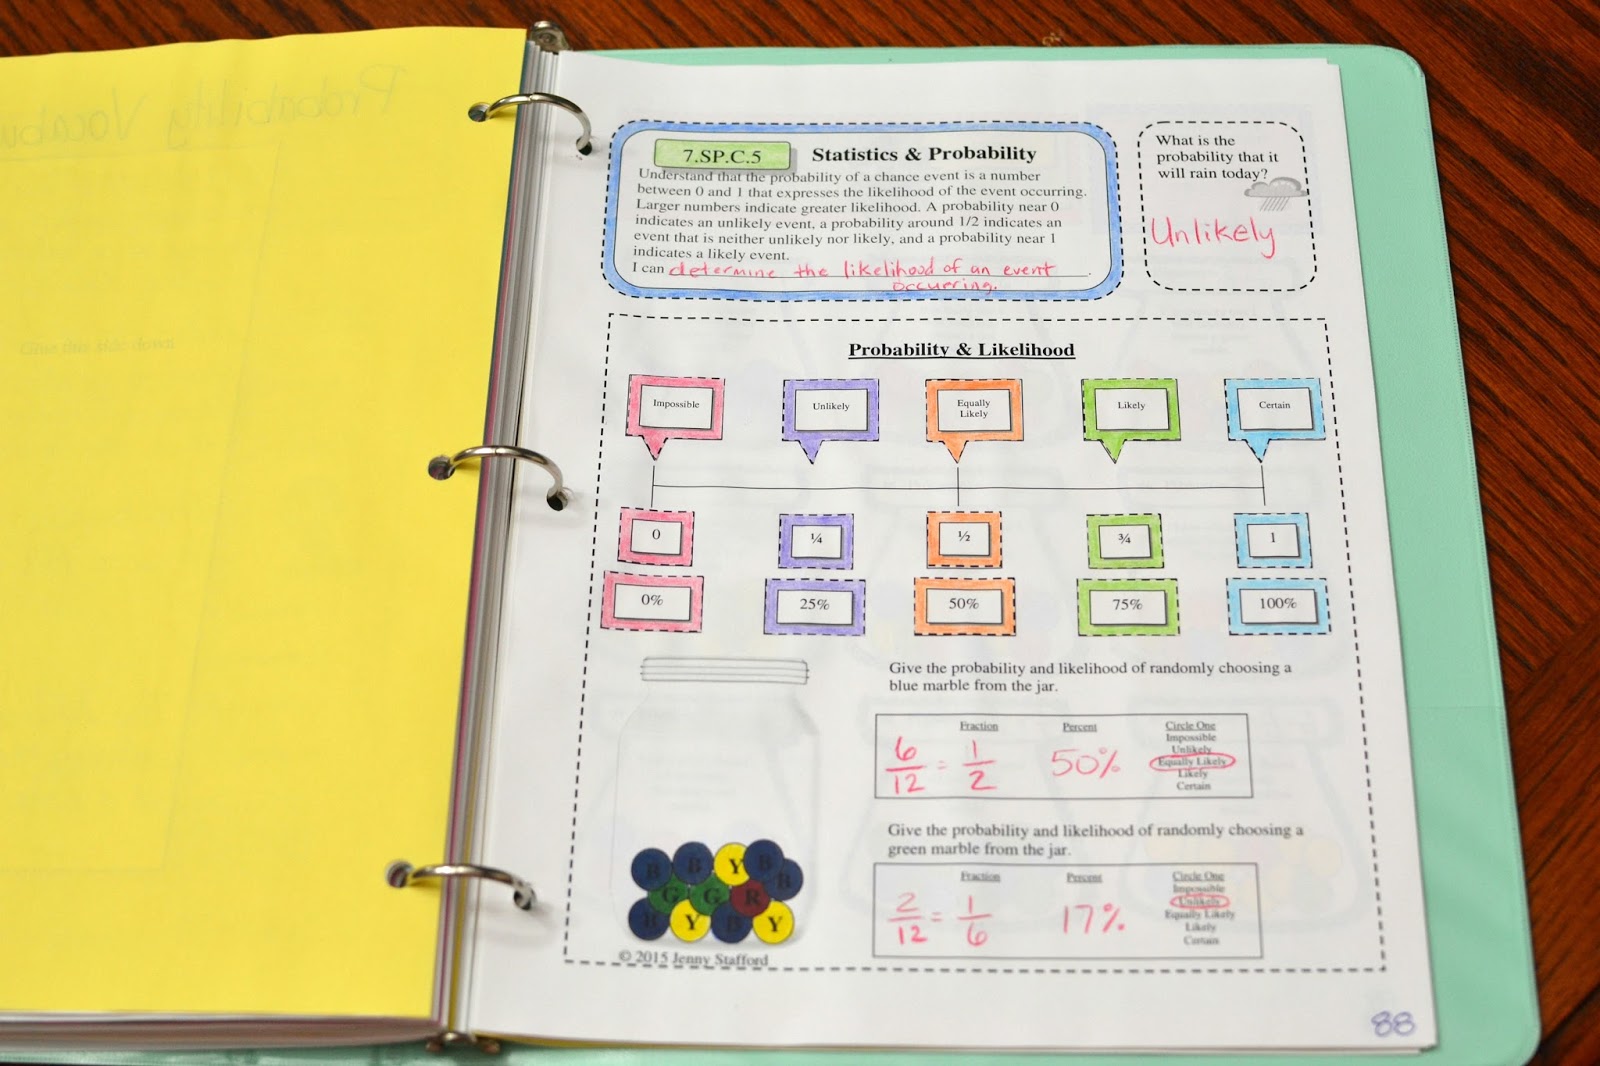 Probability Vocabu
Glue this side down
7.SP.C.5
Statistics & Probability
Understand that the probability of a chance event is a number
between 0 and 1 that expresses the likelihood of the event occurring.
Larger numbers indicate greater likelihood. A probability near 0
indicates an unlikely event, a probability around 1/2 indicates an
event that is neither unlikely nor likely, and a probability near 1
indicates a likely event.
I can determine the likelihood of an event
occuering.
What is the
probability that it
will rain today?
Unlikely
Probability & Likelihood
Impossible
Unlikely
Equally
Likely
Likely
Certain
0
¼
½
¾
1
0%
25%
50%
75%
100%
Give the probability and likelihood of randomly choosing a
blue marble from the jar.
Fraction
Percent
Circle One
6/12 = 1/2
50%
Impossible
Unlikely
Equally Likely
Likely
Certain
Give the probability and likelihood of randomly choosing a
green marble from the jar.
Fraction
Percent
Circle One
2/12 = 1/6
17%
Impossible
Unlikely
Equally Likely
Likely
Certain
B B Y B B
G G R
B Y B Y
© 2015 Jenny Stafford
88